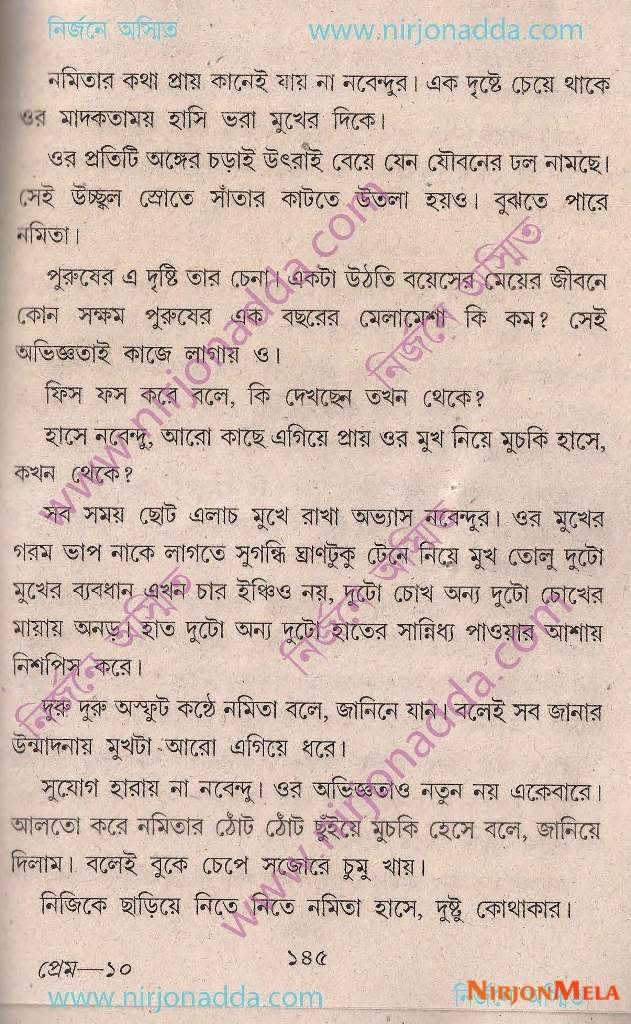 নির্জনে অস্মিত www.nirjonadda.com
নমিতার কথা প্রায় কানেই যায় না নবেন্দুর। এক দৃষ্টে চেয়ে থাকে
ওর মাদকতাময় হাসি ভরা মুখের দিকে।
ওর প্রতিটি অঙ্গের চড়াই উৎরাই বেয়ে যেন যৌবনের ঢল নামছে।
সেই উচ্ছ্বল স্রোতে সাঁতার কাটতে উতলা হয়ও। বুঝতে পারে
নমিতা।
পুরুষের এ দৃষ্টি তার চেনা। একটা উঠতি বয়েসের মেয়ের জীবনে
কোন সক্ষম পুরুষের এক বছরের মেলামেশা কি কম? সেই
অভিজ্ঞতাই কাজে লাগায় ও।
ফিস ফস করে বলে, কি দেখছেন তখন থেকে?
হাসে নবেন্দু, আরো কাছে এগিয়ে প্রায় ওর মুখ নিয়ে মুচকি হাসে,
কখন থেকে?
সব সময় ছোট এলাচ মুখে রাখা অভ্যাস নবেন্দুর। ওর মুখের
গরম ভাপ নাকে লাগতে সুগন্ধি ঘ্রাণটুকু টেনে নিয়ে মুখ তোলু দুটো
মুখের ব্যবধান এখন চার ইঞ্চিও নয়, দুটো চোখ অন্য দুটো চোখের
মায়ায় অনড়। হাত দুটো অন্য দুটো হাতের সান্নিধ্য পাওয়ার আশায়
নিশপিস করে।
দুরু দুরু অস্ফুট কন্ঠে নমিতা বলে, জানিনে যান। বলেই সব জানার
উন্মাদনায় মুখটা আরো এগিয়ে ধরে।
সুযোগ হারায় না নবেন্দু। ওর অভিজ্ঞতাও নতুন নয় একেবারে।
আলতো করে নমিতার ঠোঁট ঠোঁট ছুঁইয়ে মুচকি হেসে বলে, জানিয়ে
দিলাম। বলেই বুকে চেপে সজোরে চুমু খায়।
নিজিকে ছাড়িয়ে নিতে নিতে নমিতা হাসে, দুষ্টু কোথাকার।
১৪৫
প্রেম—১০
www.nirjonadda.com নির্জনে অস্মিত
NIRJONMELA
www.nirjonadda.com
নির্জনে অস্মিত
www.nirjonadda.com
নির্জনে অস্মিত
নির্জনে অস্মিত